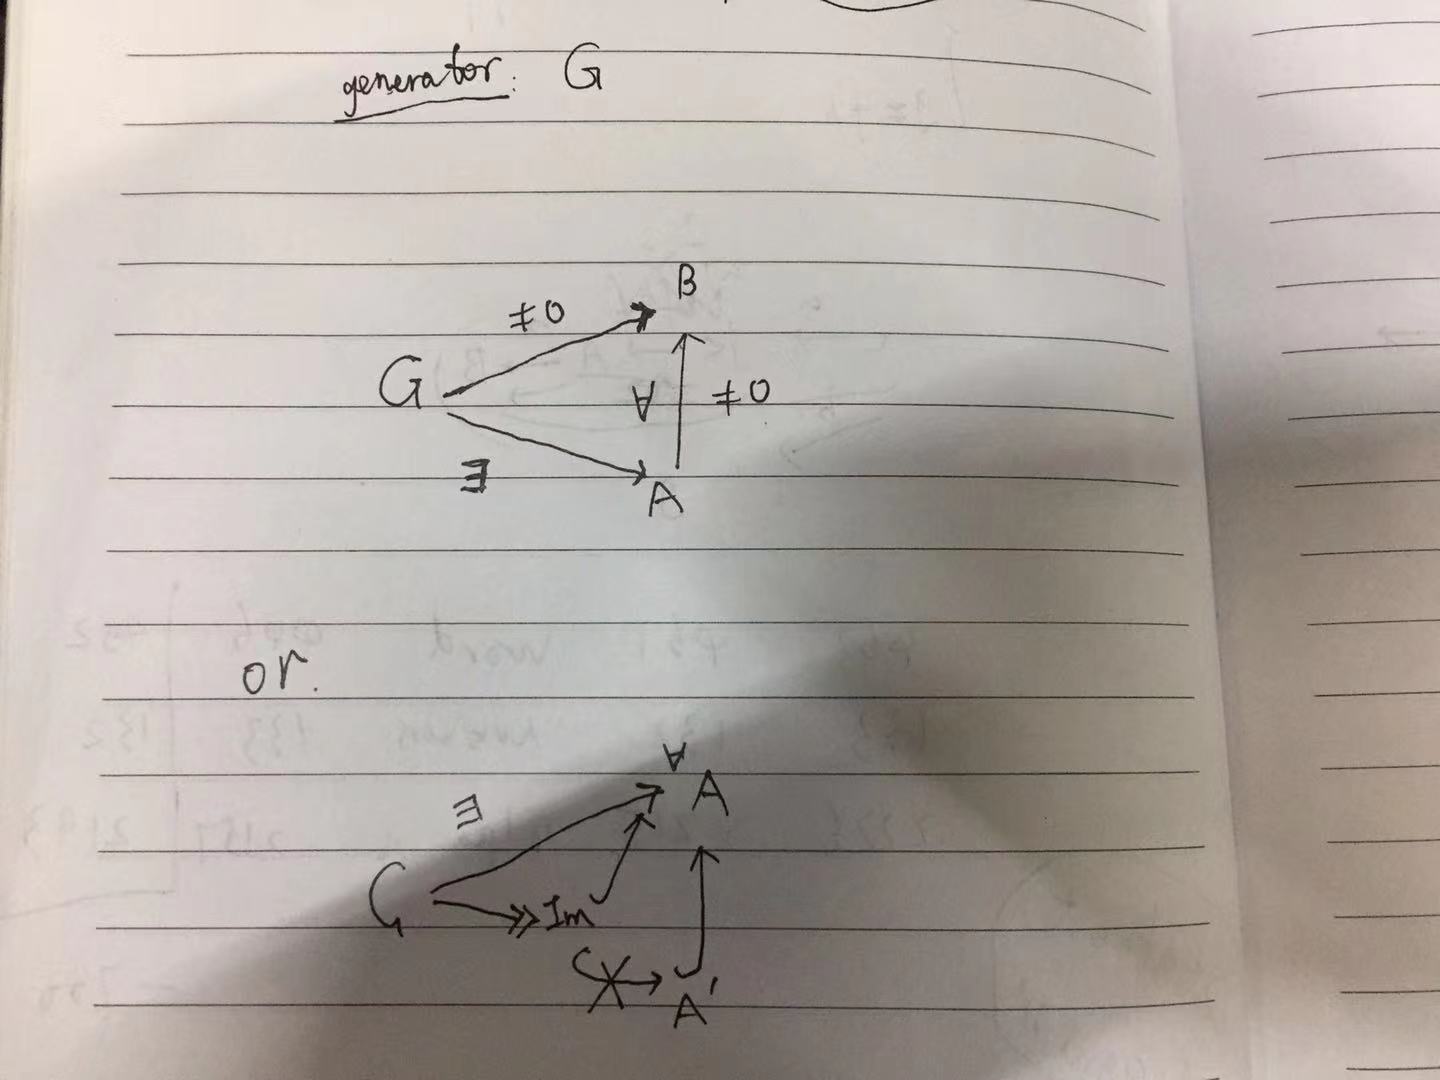 generator: G
≠0 B
G ∀ ≠0
∃ A
or.
∀
∃ A
G Im
A'